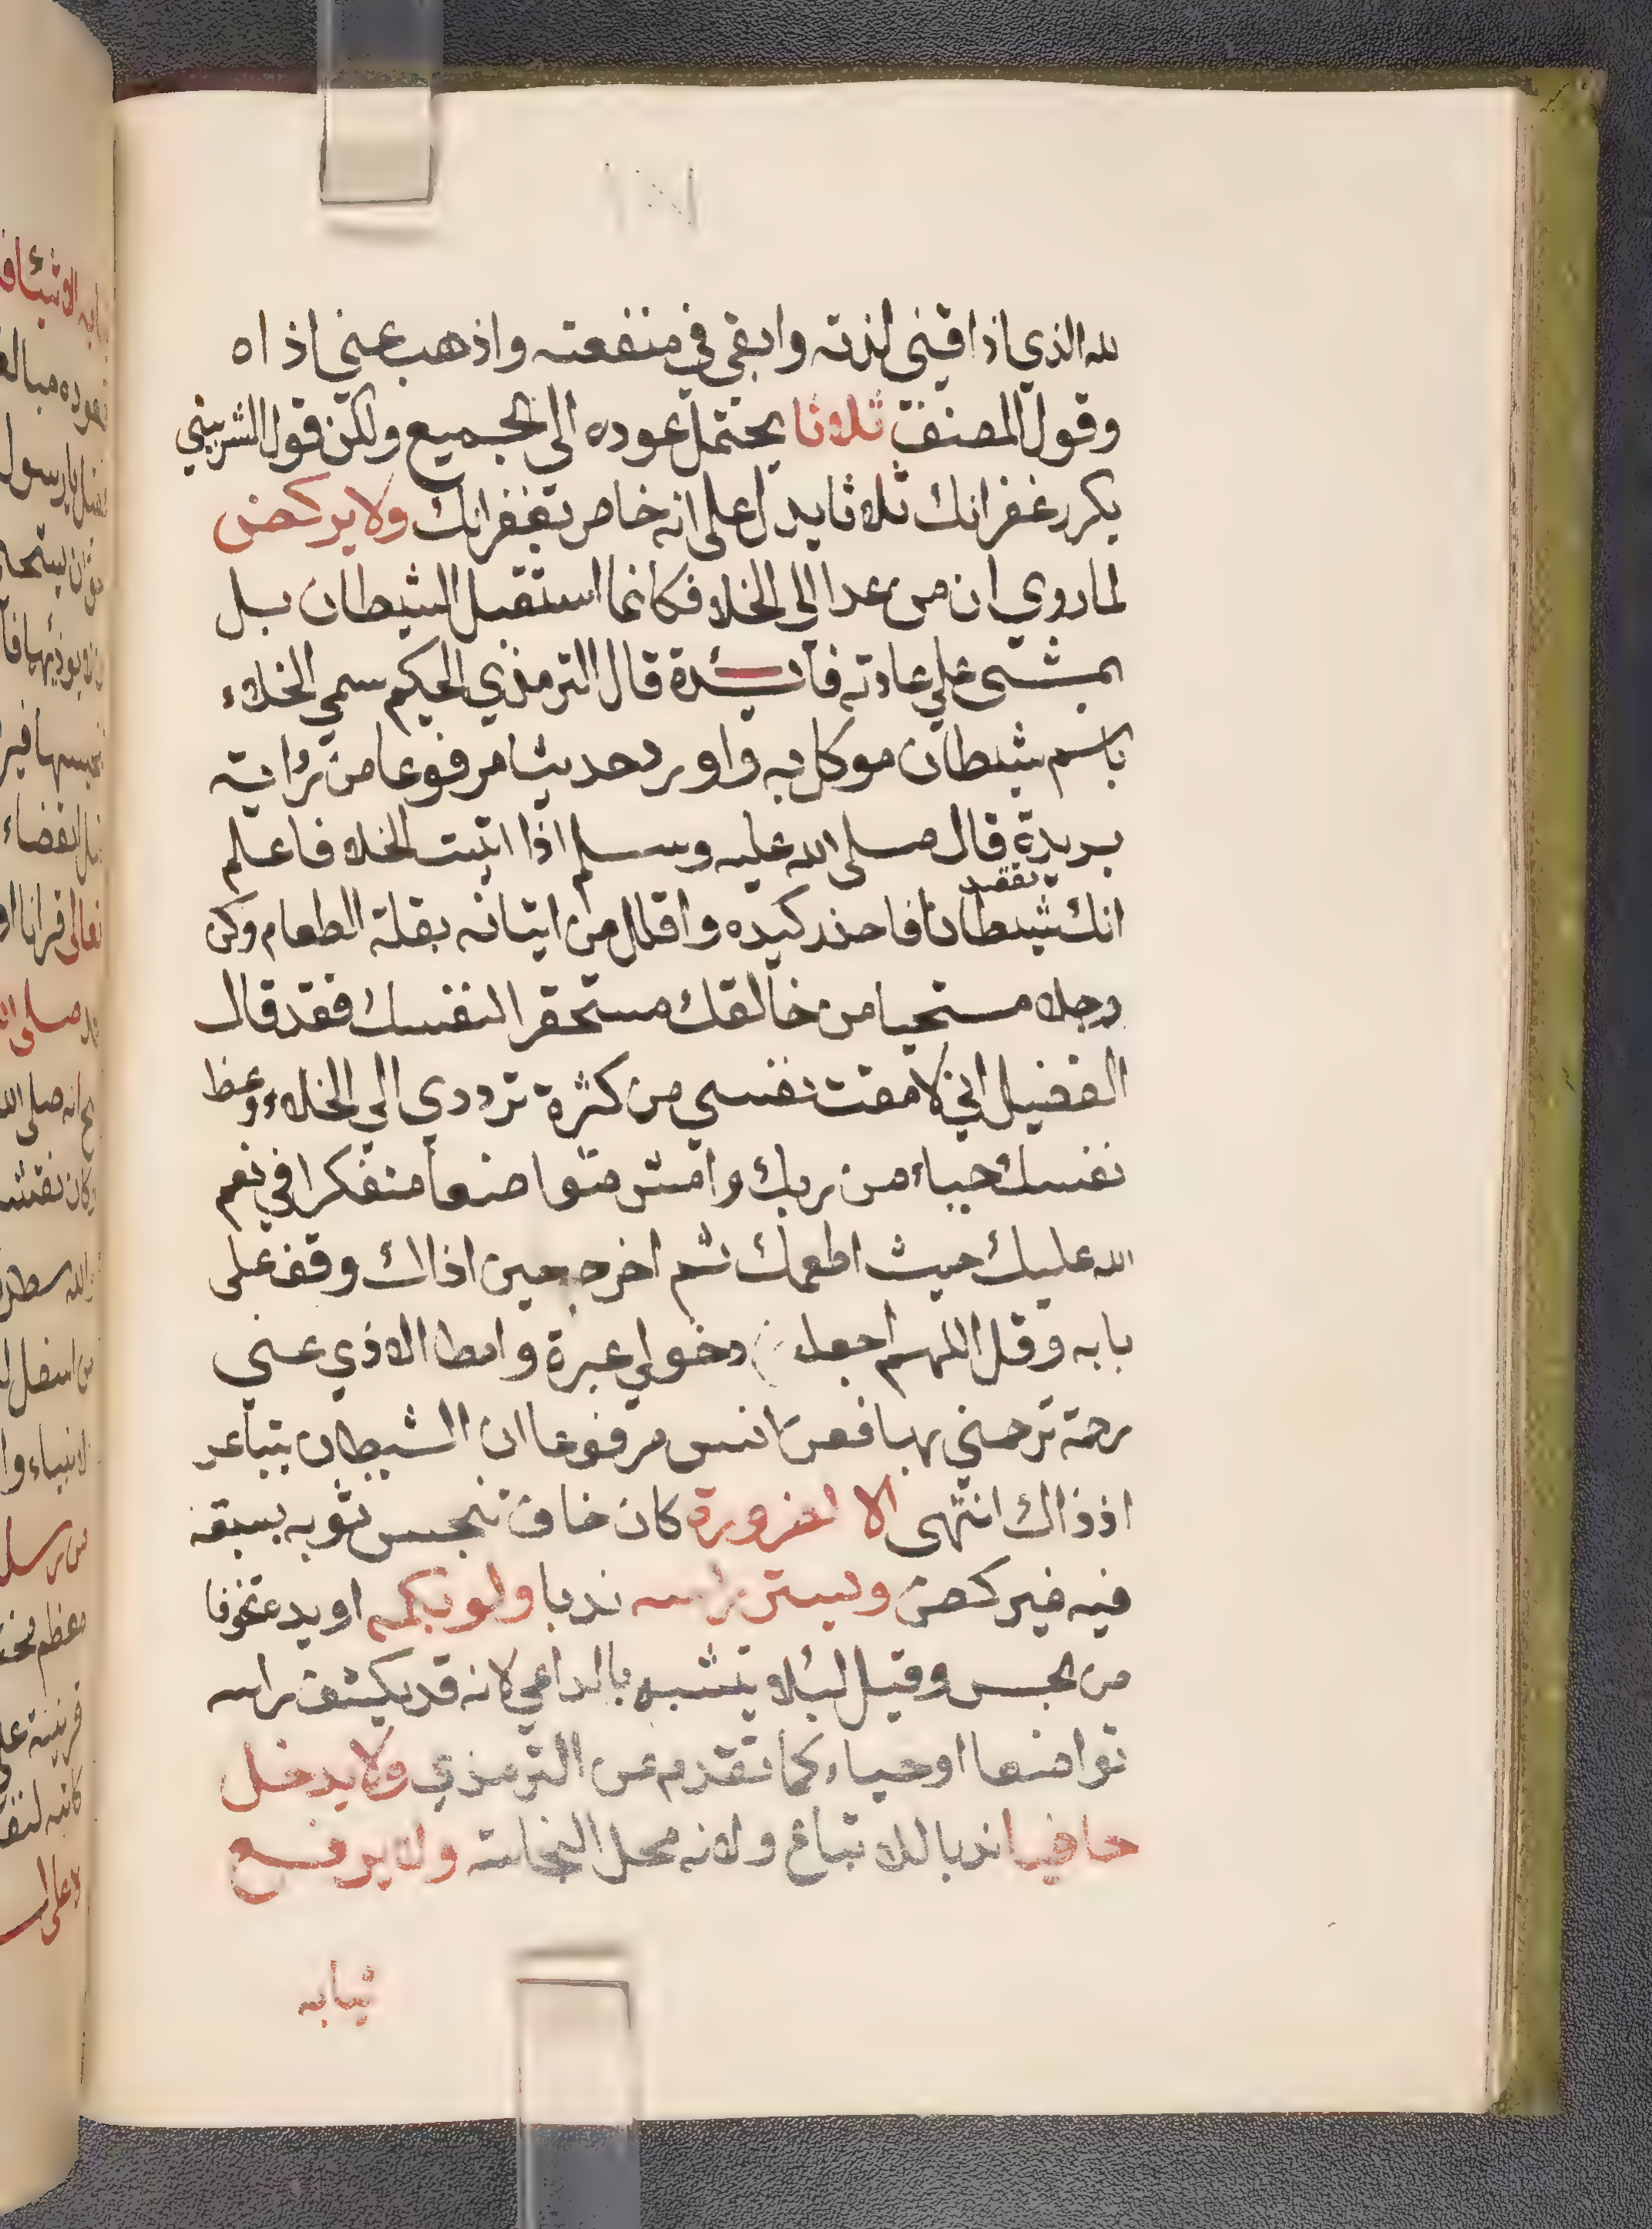 لله الذي اذاقني لذته وابقي في منفعته واذهب عني اذاه
وقول المصنف ثلاثا يحتمل عوده الى الجميع ولكن قول الشربيني
يكرر غفرانك ثلاثا يدل على انه خاص بغفرانك ولا يركض
لما روي ان من عدا الى الخلاء فكانما استقبل الشيطان بل
يمشى علي عادته فائدة قال الترمذي الحكيم سمي الخلاء
باسم شيطان موكل به واورد حديثا مرفوعا من رواية
بريدة قال صلى الله عليه وسلم اذا اتيت الخلاء فاعلم
انك تقصد شيطانا فاحذر كيده واقلل من اتيانه بقلة الطعام وكن
وجلا مستحيا من خالقك مستحقرا لنفسك فقد قال
الفضيل اني لامقت نفسي من كثرة ترددي الي الخلاء وغط
نفسك حياء من ربك وامش متواضعا متفكرا في نعم
الله عليك حيث اطعمك ثم اخرجه حين اذاك وقف على
بابه وقل اللهم اجعل دخولي عبرة وامط الاذي عني
رحمة ترحمني بها فعن انس مرفوعا ان الشيطان يتباعد
اذ ذاك انتهى الا لضرورة كان خاف تنجس ثوبه بسبقه
فيه فيركض ويستر راسه ندبا ولو بكمه او يده خوفا
من الجن وقيل لئلا يتشبه بالداعي لانه قد يكشف راسه
تواضعا او حياء كما تقدم عن الترمذي ولا يدخل
حافيا ندبا للاتباع ولانه محل النجاسة ولا يرفع
ثيابه